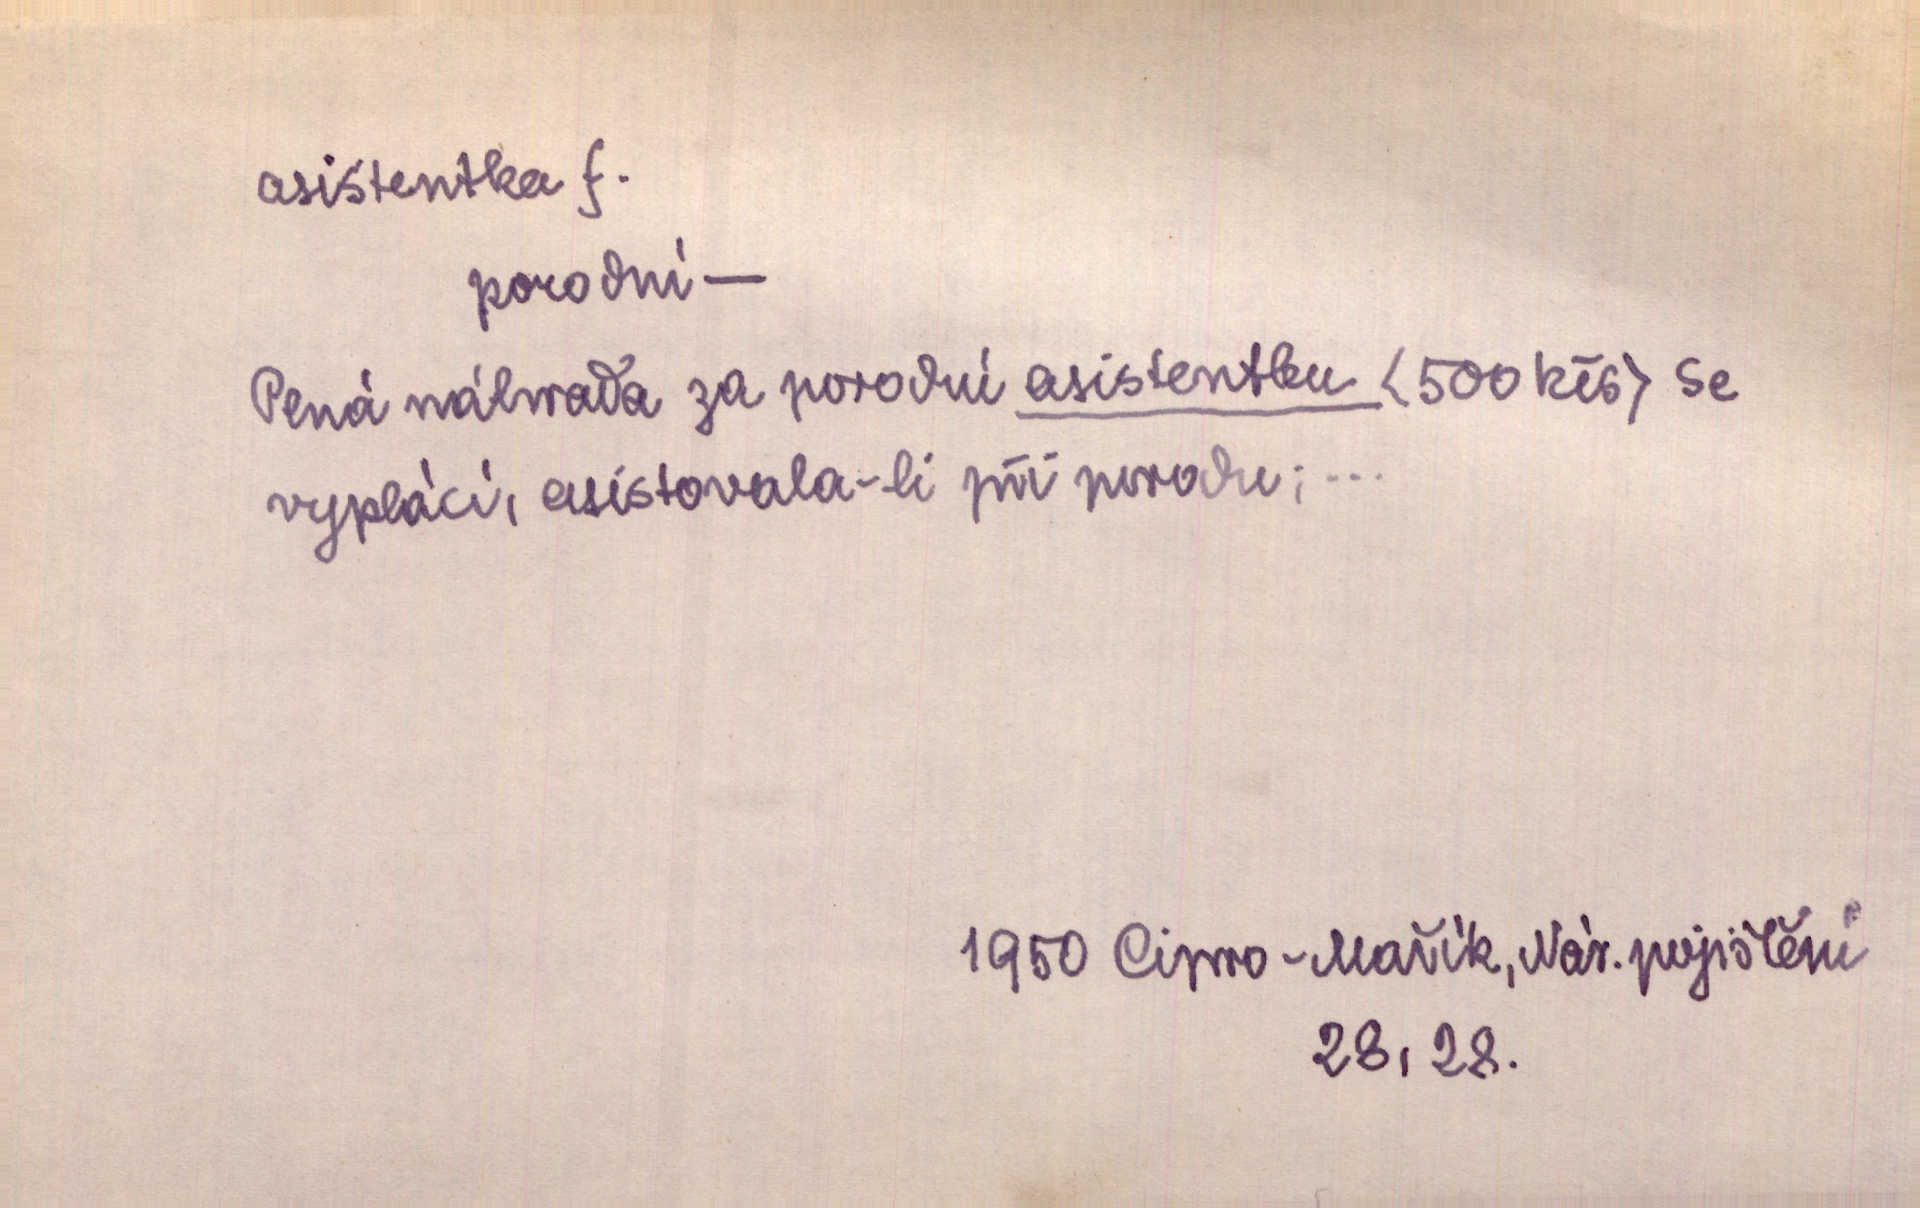 asistentka f.
porodní —
Pená náhrada za porodní asistentku <500 Kčs> se
vyplácí, asistovala-li při porodu; ...
1950 Cipro-Mařík, Nár. pojištění
28, 28.